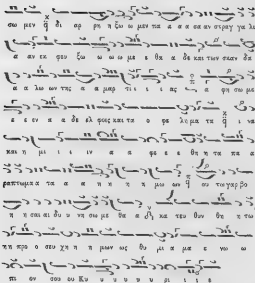 σω μεν δι αρ ρη ξω ω μεν πα α α σαν στραγ γα λι
α αν εκ φευ ξω ω ω με θα α δε και των σκαν δα
α α λων της α α μαρ τι ι ι ας α φη σω με
ε ε εν α α δε ελ φοις και τα ο φε λη μα τα ι να
και η μι ι ι ιν α α φε ε θη τα πα α
ραπτωματα τα α η η η η μω ων ου τω γαρ βο
η η σαι αι δυ υ νη σω με θα α κα τευ θυν θη τω
η η προ ο σευ χη η η μων ως θυ μι α μα ε νω ω
πι ον σου ου Κυ υ υ υ υ υ ρι ι ι ε